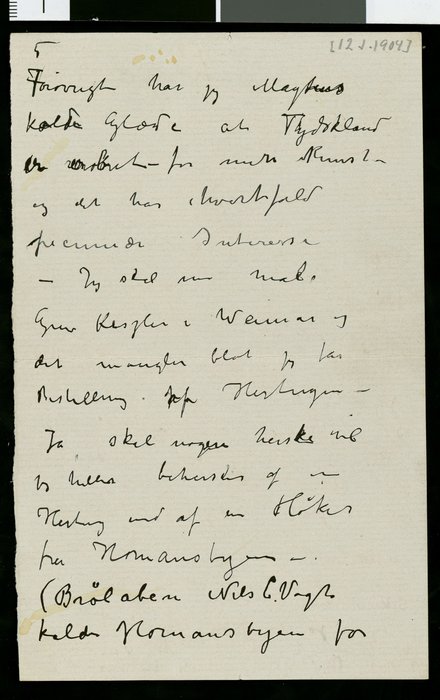 [12.1.1904]
5
Forøvrigt har jeg Magtens
kolde Glæde at Tydskland
er erobret – for min Kunst –
og det har ihvertfald
pecuniær Interesse
– Jeg skal nu male
Grev Kessler i Weimar og
det mangler blot jeg får
Bestilling på Hertugen –
Ja, skal nogen herske vil
jeg heller beherskes af en
Hertug end af en Høker
fra Homansbyen –.
(Brølaben Nils C. Vogt
kalder Homansbyen for